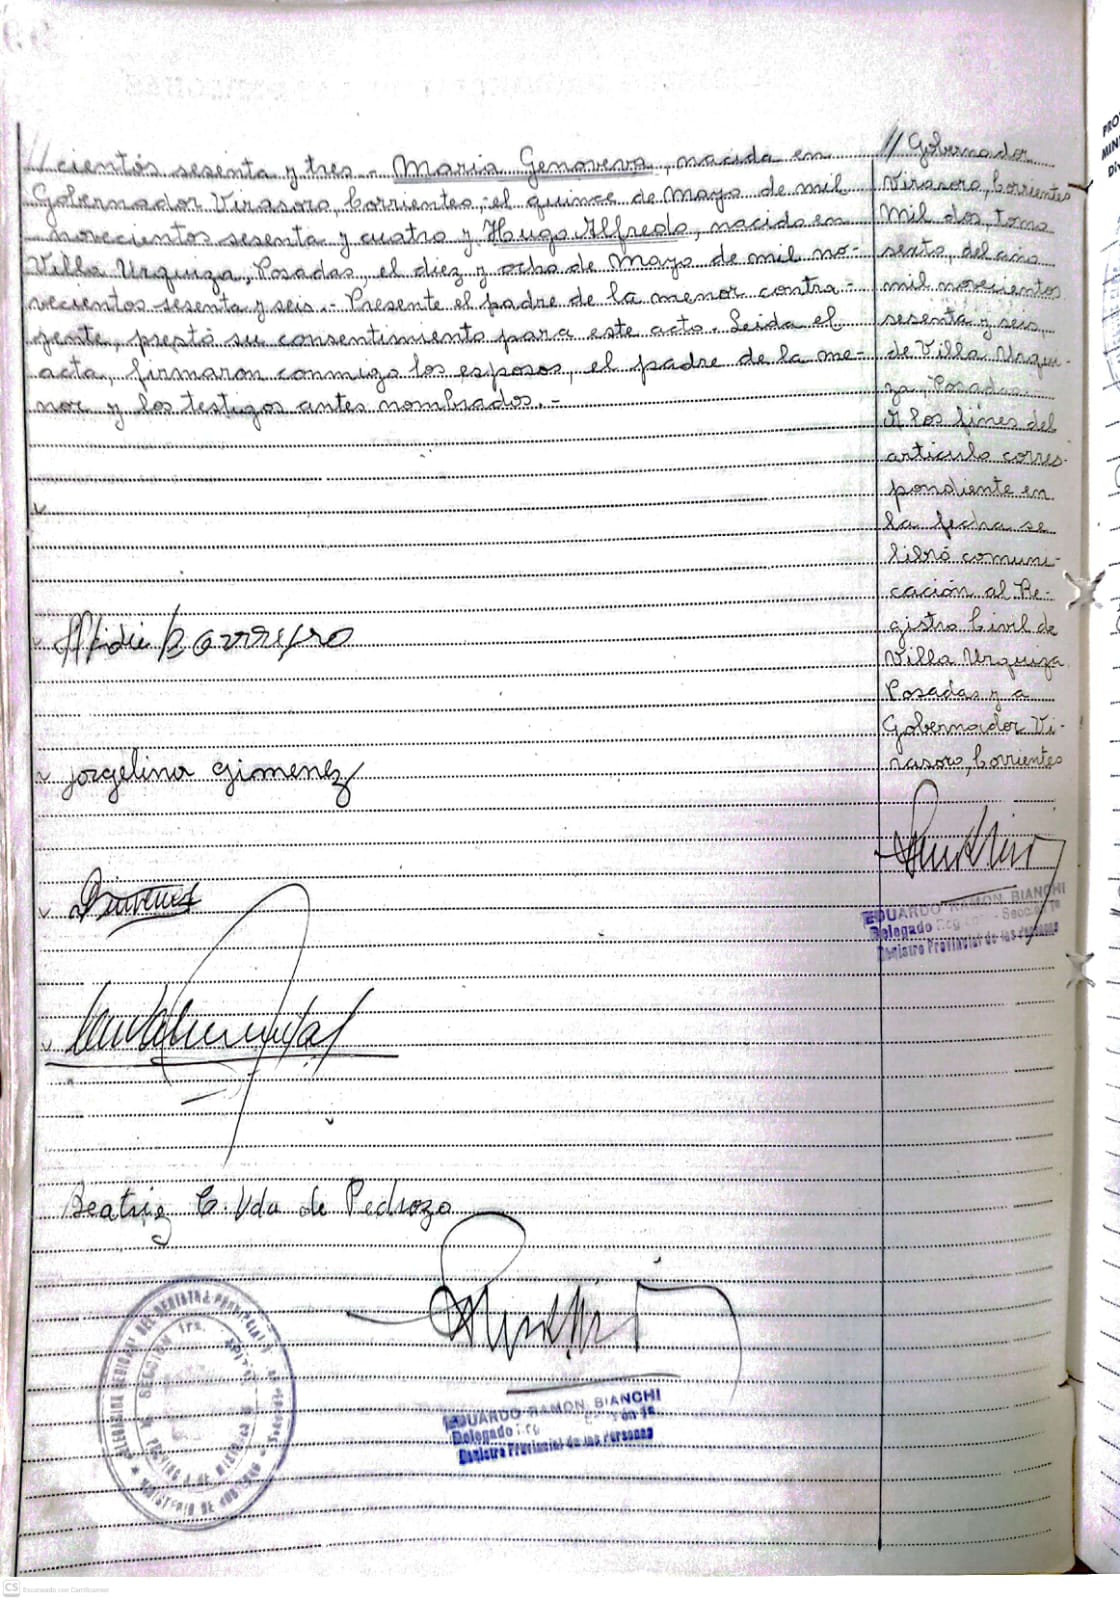 //cientos sesenta y tres.- Maria Genoveva, nacida en
Gobernador Virasoro, Corrientes, el quince de Mayo de mil
novecientos sesenta y cuatro y Hugo Alfredo, nacido en
Villa Urquiza, Posadas, el diez y ocho de Mayo de mil no-
vecientos sesenta y seis.- Presente el padre de la menor contra-
yente, prestó su consentimiento para este acto. Leida el
acta, firmaron conmigo los esposos, el padre de la me-
nor y los testigos antes nombrados.-
// Gobernador
Virasoro, Corrientes
Mil dos, tomo
sexto, del año
mil novecientos
sesenta y seis,
de Villa Urqui-
za, Posadas.
A los fines del
articulo corres-
pondiente en
la fecha se
libró comuni-
cación al Re-
gistro Civil de
Villa Urquiza
Posadas y a
Gobernador Vi-
rasoro, Corrientes
EDUARDO RAMON BIANCHI
Delegado
Registro Provincial de las Personas
Jorgelina Gimenez
Beatriz C. Vda de Pedrozo
EDUARDO RAMON BIANCHI
Delegado
Registro Provincial de las Personas
SECCION 1ra.
CS Escaneado con CamScanner